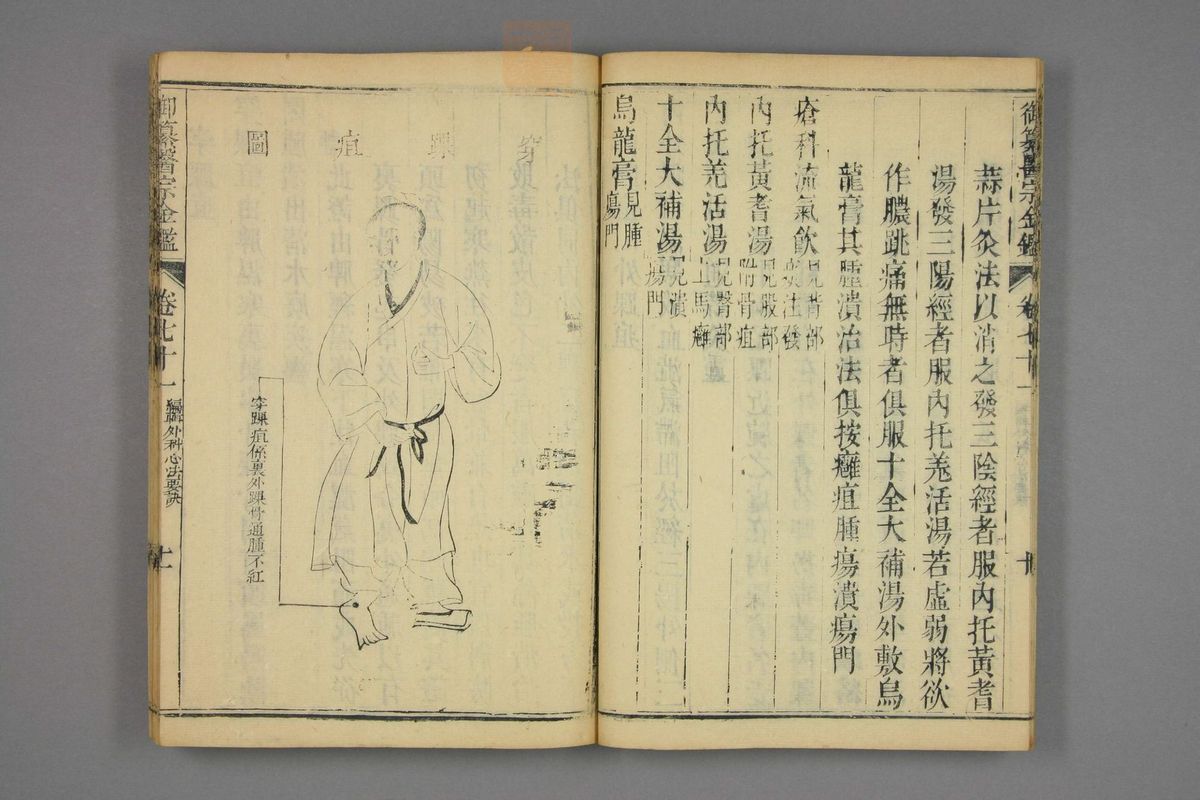 御纂醫宗金鑑 卷七十一 十
蒜片灸法以消之發三陰經者服內托黃耆
湯發三陽經者服內托羗活湯若虛弱將欲
作膿跳痛無時者俱服十全大補湯外敷烏
龍膏其腫潰治法俱按癰疽腫瘍潰瘍門
瘡科流氣飲見背部
內托黃耆湯見股部附骨疽
內托羗活湯見臀部上馬癰
十全大補湯見潰瘍門
烏龍膏見腫瘍門
穿踝疽圖
穿踝疽係裏外踝骨通腫不紅
御纂醫宗金鑑 卷七十一 編輯外科心法要訣 十一